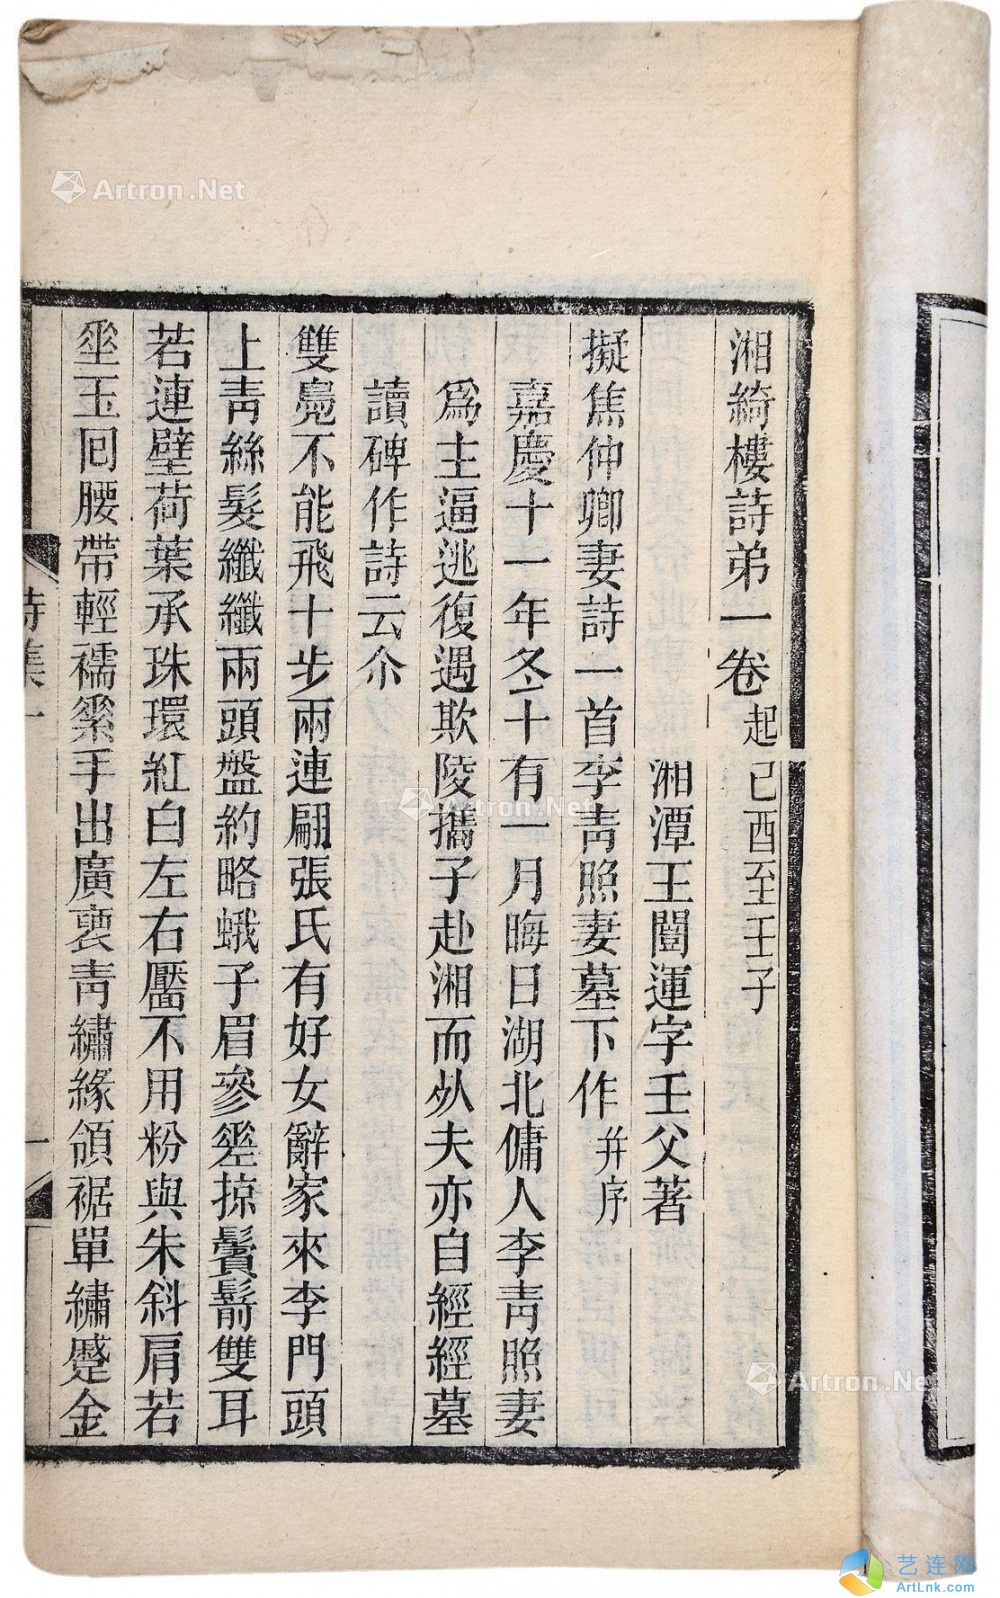 湘綺樓詩弟一卷 起己酉至壬子
湘潭王闓運字壬父著
擬焦仲卿妻詩一首李青照妻墓下作 并序
嘉慶十一年冬十有一月晦日湖北傭人李青照妻
爲主逼逃復遇欺陵攜子赴湘而夊夫亦自經經墓
讀碑作詩云尒
雙鳧不能飛十步兩連翩張氏有好女辭家來李門頭
上青絲髮纖纖兩頭盤約略蛾子眉參差掠鬢髾雙耳
若連璧荷葉承珠環紅白左右靨不用粉與朱斜肩若
坐玉回腰帶輕襦繠手出廣裵青繡緣領裾單繡蹙金
詩集一
一
Artron.Net
Artron.Net
Artron.Net
艺连网
ArtLnk.com